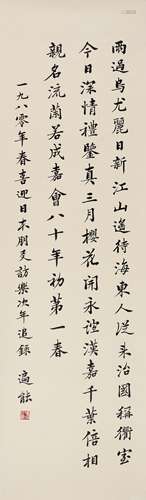 雨過烏尤麗日新江山遙待海東人從来治國稱衢室
今日深情禮鑒真三月櫻花開永誼漢嘉千葉倍相
親名流蘭若成嘉會八十年初第一春
一九八〇年春喜迎日本朋友訪樂次年追錄 遍能